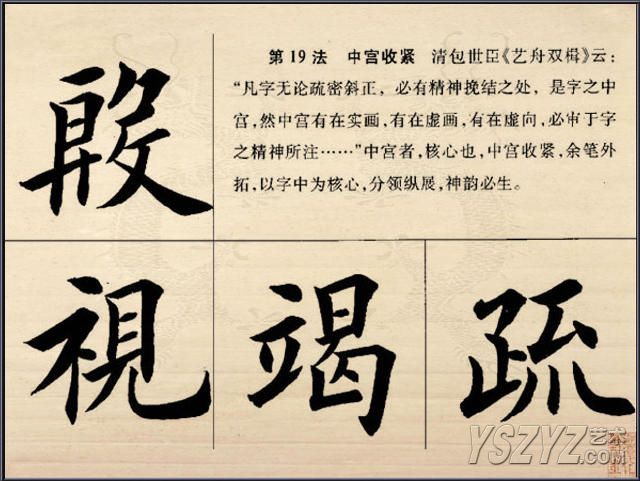 第19法 中宫收紧 清包世臣《艺舟双楫》云:
“凡字无论疏密斜正，必有精神挽结之处，是字之中
宫，然中宫有在实画，有在虚画，有在虚向，必审于字
之精神所注……”中宫者，核心也，中宫收紧，余笔外
拓，以字中为核心，分领纵展，神韵必生。
殷
視 竭 疏
YSZYZ艺术
.COM